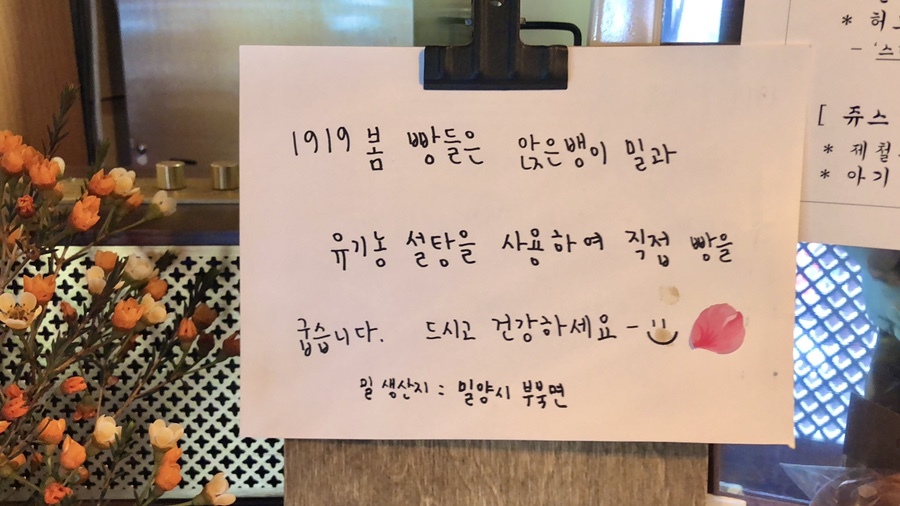 1919 봄 빵들은 앉은뱅이 밀과
유기농 설탕을 사용하여 직접 빵을
굽습니다. 드시고 건강하세요~
밀 생산지 : 밀양시 부북면
[ 쥬스
* 제철
* 아기